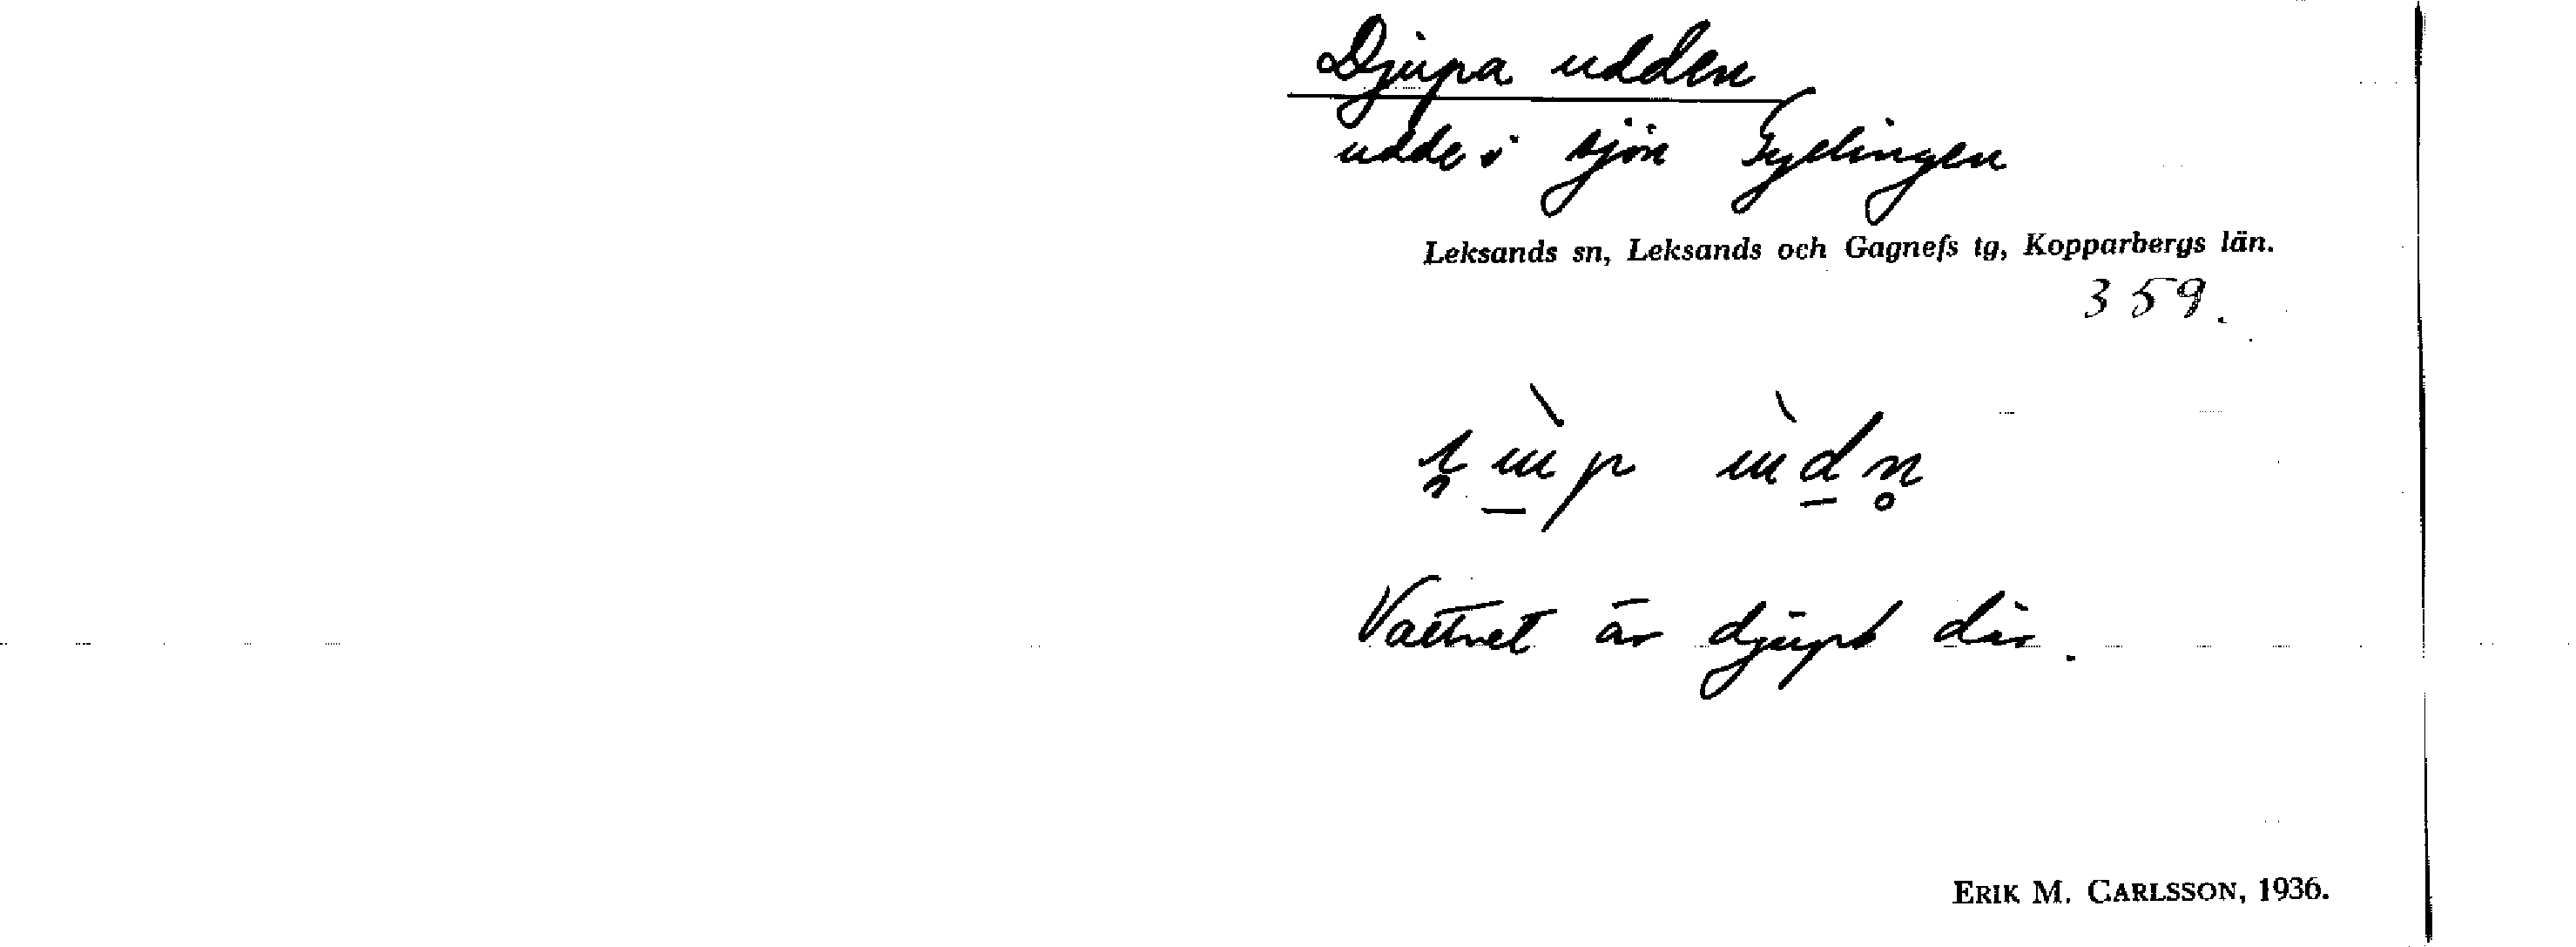 Djupa udden
udde i sjön Tyelingen
Leksands sn, Leksands och Gagnefs tg, Kopparbergs län.
359.
Vattnet är djupt där.
ERIK M. CARLSSON, 1936.